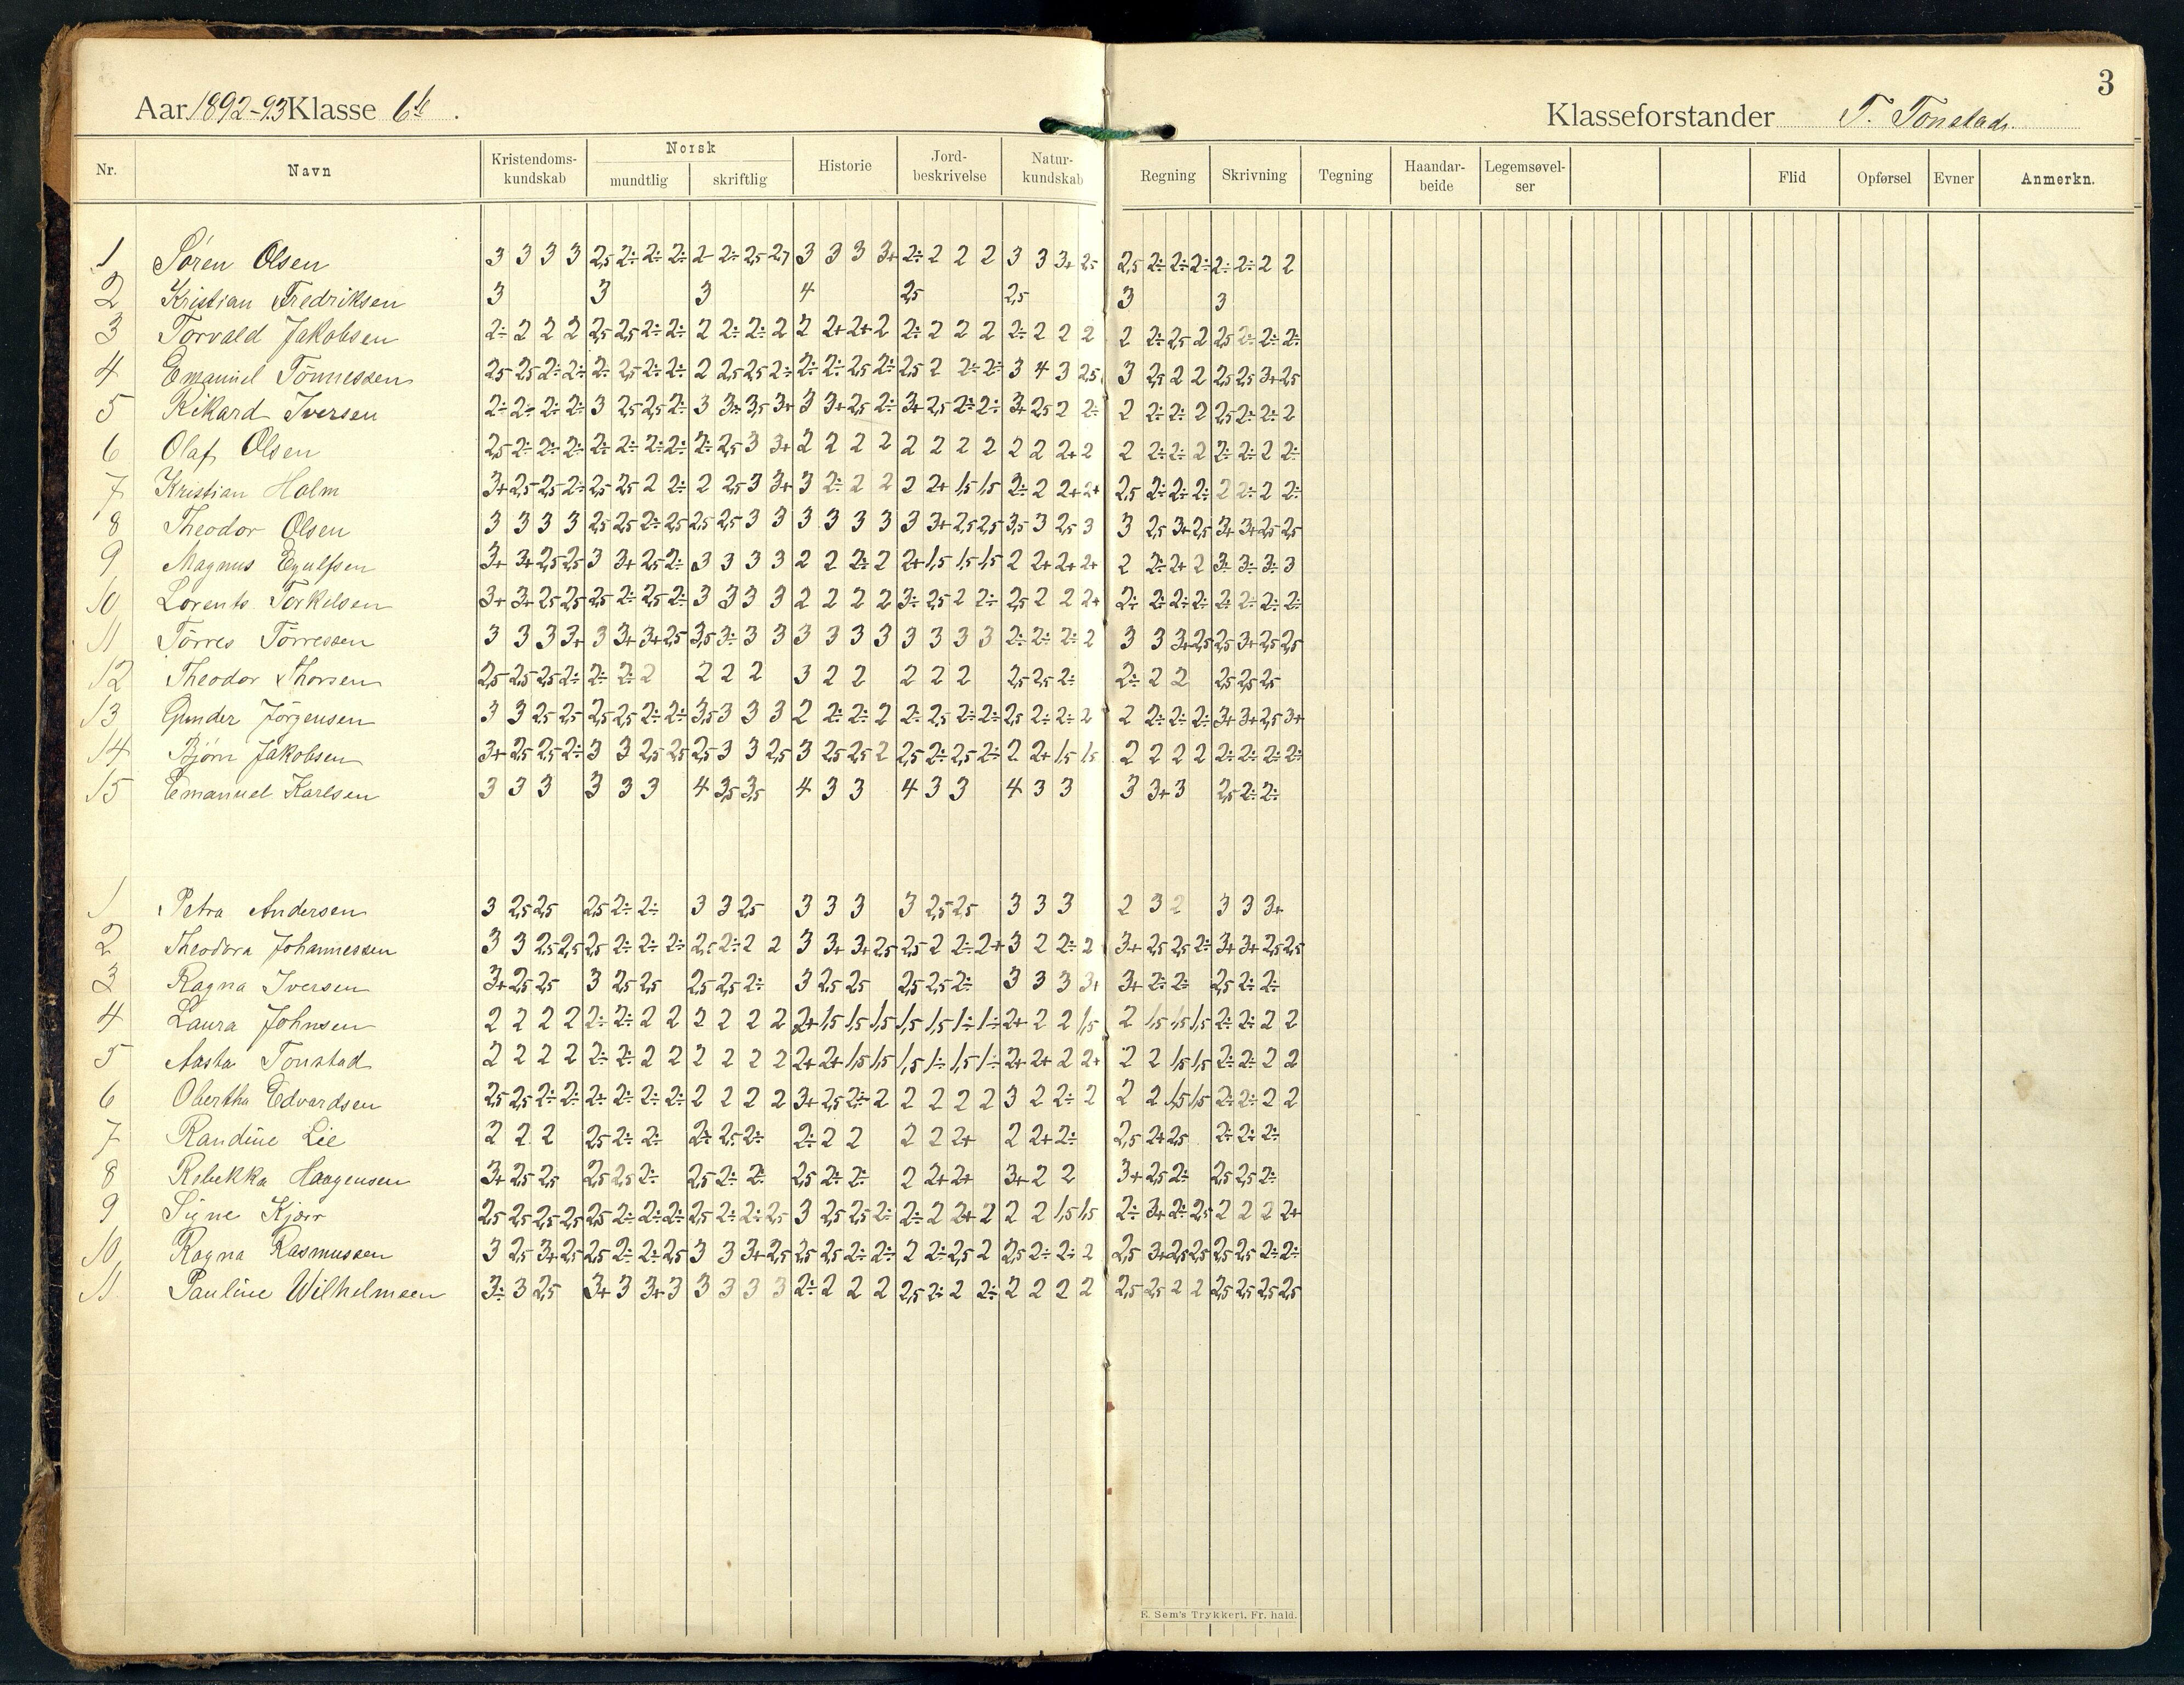 3
Aar 1892-93 Klasse 6te.
Klasseforstander T. Tonstad.
Nr. Navn Kristendoms-kundskab Norsk mundtlig skriftlig Historie Jord-beskrivelse Natur-kundskab Regning Skrivning Tegning Haandar-beide Legemsøvel-ser Flid Opførsel Evner Anmerkn.
1 Søren Olsen 3 3 3 3 2,5 2÷ 2÷ 2÷ 2- 2÷ 2,5 2,5 3 3 3 3+ 2÷ 2 2 2 3 3 3+ 2,5 2,5 2÷ 2÷ 2÷ 2÷ 2÷ 2 2
2 Kristian Fredriksen 3 3 3 4 2,5 2,5 3 3
3 Torvald Jakobsen 2÷ 2 2 2 2,5 2,5 2÷ 2÷ 2 2÷ 2÷ 2 2 2+ 2+ 2 2÷ 2 2 2 2÷ 2 2 2 2 2÷ 2,5 2 2,5 2÷ 2÷ 2÷
4 Emanuel Tönnessen 2,5 2,5 2÷ 2÷ 2÷ 2,5 2÷ 2÷ 2 2,5 2,5 2÷ 2÷ 2÷ 2,5 2÷ 2,5 2 2÷ 2÷ 3 4 3 2,5 3 2,5 2 2 2,5 2,5 3+ 2,5
5 Rikard Iversen 2÷ 2÷ 2÷ 2÷ 3 2,5 2,5 2÷ 3 3÷ 3,5 3+ 3 3+ 2,5 2÷ 3+ 2,5 2÷ 2÷ 3+ 2,5 2 2÷ 2 2÷ 2÷ 2 2,5 2÷ 2÷ 2
6 Olaf Olsen 2,5 2÷ 2÷ 2÷ 2÷ 2÷ 2÷ 2÷ 2÷ 2,5 3 3+ 2 2 2 2 2 2 2 2 2 2 2+ 2 2 2÷ 2÷ 2 2÷ 2÷ 2 2÷
7 Kristian Holm 3+ 2,5 2,5 2÷ 2,5 2,5 2 2÷ 2 2,5 3 3+ 3 2÷ 2 2 2 2+ 1,5 1,5 2÷ 2 2+ 2+ 2,5 2÷ 2÷ 2÷ 2 2÷ 2 2÷
8 Theodor Olsen 3 3 3 3 2,5 2,5 2÷ 2,5 2,5 2,5 3 3 3 3 3 3 3 3+ 2,5 2,5 3,5 3 2,5 3 3 2,5 3+ 2,5 3+ 3+ 2,5 2,5
9 Magnus Egulfsen 3+ 3+ 2,5 2,5 3 3+ 2,5 2÷ 3 3 3 3 2 2 2÷ 2 2+ 1,5 1,5 1,5 2 2+ 2+ 2+ 2 2÷ 2+ 2 3÷ 3÷ 3÷ 3
10 Lorents Torkelsen 3+ 3+ 2,5 2,5 2,5 2÷ 2,5 2÷ 3 3 3 3 2 2 2 2 3÷ 2,5 2 2÷ 2,5 2 2 2+ 2÷ 2÷ 2÷ 2÷ 2÷ 2÷ 2÷ 2÷
11 Törres Törressen 3 3 3 3+ 3 3+ 3+ 2,5 3,5 3÷ 3 3 3 3 3 3 3 3 3 3 2÷ 2÷ 2÷ 2 3 3 3+ 2,5 2,5 3+ 2,5 2,5
12 Theodor Thorsen 2,5 2,5 2,5 2÷ 2÷ 2÷ 2 2 2 2 3 2 2 2 2 2 2,5 2,5 2÷ 2÷ 2 2 2,5 2,5 2,5
13 Gunder Jörgensen 3 3 2,5 2,5 2,5 2,5 2÷ 2÷ 3,5 3 3 3 2 2÷ 2÷ 2 2÷ 2,5 2÷ 2÷ 2,5 2÷ 2÷ 2 2 2÷ 2÷ 2÷ 3+ 3+ 2,5 3+
14 Bjørn Jakobsen 3+ 2,5 2,5 2÷ 3 3 2,5 2,5 2,5 3 3 2,5 3 2,5 2,5 2 2,5 2÷ 2,5 2÷ 2 2+ 1,5 1,5 2 2 2 2 2÷ 2÷ 2÷ 2÷
15 Emanuel Karlsen 3 3 3 3 3 3 4 3,5 3,5 4 3 3 4 3 3 4 3 3 3 3+ 3 2,5 2÷ 2÷
1 Petra Andersen 3 2,5 2,5 2,5 2÷ 2÷ 3 3 2,5 3 3 3 3 2,5 2,5 3 3 3 2 3 2 3 3 3+
2 Theodora Johannessen 3 3 2,5 2,5 2,5 2÷ 2÷ 2÷ 2,5 2÷ 2 2 3 3+ 3+ 2,5 2,5 2 2÷ 2+ 3 2 2÷ 2 3+ 2,5 2,5 2÷ 3+ 3+ 2,5 2,5
3 Ragna Iversen 3+ 2,5 2,5 3 2,5 2,5 2,5 2,5 2÷ 3 2,5 2,5 2,5 2,5 2÷ 3 3 3 3+ 3+ 2÷ 2÷ 2,5 2÷ 2÷
4 Laura Johnsen 2 2 2 2 2÷ 2÷ 2 2 2 2 2 2 2+ 1,5 1,5 1,5 1,5 1,5 1÷ 1÷ 2+ 2 2 1,5 2 1,5 1,5 1,5 2÷ 2÷ 2 2
5 Aasta Tonstad 2 2 2 2 2÷ 2÷ 2 2 2 2 2 2 2+ 2+ 1,5 1,5 1,5 1÷ 1,5 1÷ 2+ 2+ 2 2+ 2 2 1,5 1,5 2÷ 2÷ 2 2
6 Obertha Edvardsen 2,5 2,5 2÷ 2÷ 2÷ 2÷ 2÷ 2÷ 2 2 2 2 3+ 2,5 2÷ 2 2 2 2 2 3 2 2÷ 2 2 2 1,5 1,5 2÷ 2÷ 2 2
7 Randine Lie 2 2 2 2,5 2÷ 2÷ 2÷ 2,5 2÷ 2÷ 2 2 2 2 2+ 2 2+ 2÷ 2,5 2+ 2,5 2÷ 2÷ 2÷
8 Rebekka Haagensen 3+ 2,5 2,5 2,5 2,5 2÷ 2,5 2÷ 2÷ 2,5 2÷ 2÷ 2 2+ 2+ 3+ 2 2 3+ 2,5 2÷ 2,5 2,5 2÷
9 Sine Kjørr 2,5 2,5 2,5 2,5 2,5 2÷ 2÷ 2÷ 2,5 2÷ 2÷ 2,5 3 2,5 2,5 2÷ 2÷ 2 2+ 2 2 2 1,5 1,5 2÷ 3+ 2÷ 2,5 2 2 2 2+
10 Ragna Rasmussen 3 2,5 3+ 2,5 2,5 2÷ 2÷ 2,5 3 3 3+ 2,5 2,5 2,5 2÷ 2÷ 2 2÷ 2,5 2 2,5 2÷ 2÷ 2 2,5 3+ 2,5 2,5 2,5 2,5 2÷ 2÷
11 Pauline Wilhelmsen 3÷ 3 2,5 3+ 3 3+ 3 3 3 3 3 2÷ 2 2 2 2,5 2÷ 2 2÷ 2 2 2 2 2,5 2,5 2 2 2,5 2,5 2,5 2,5
E. Sem's Trykkeri, Fr. hald.